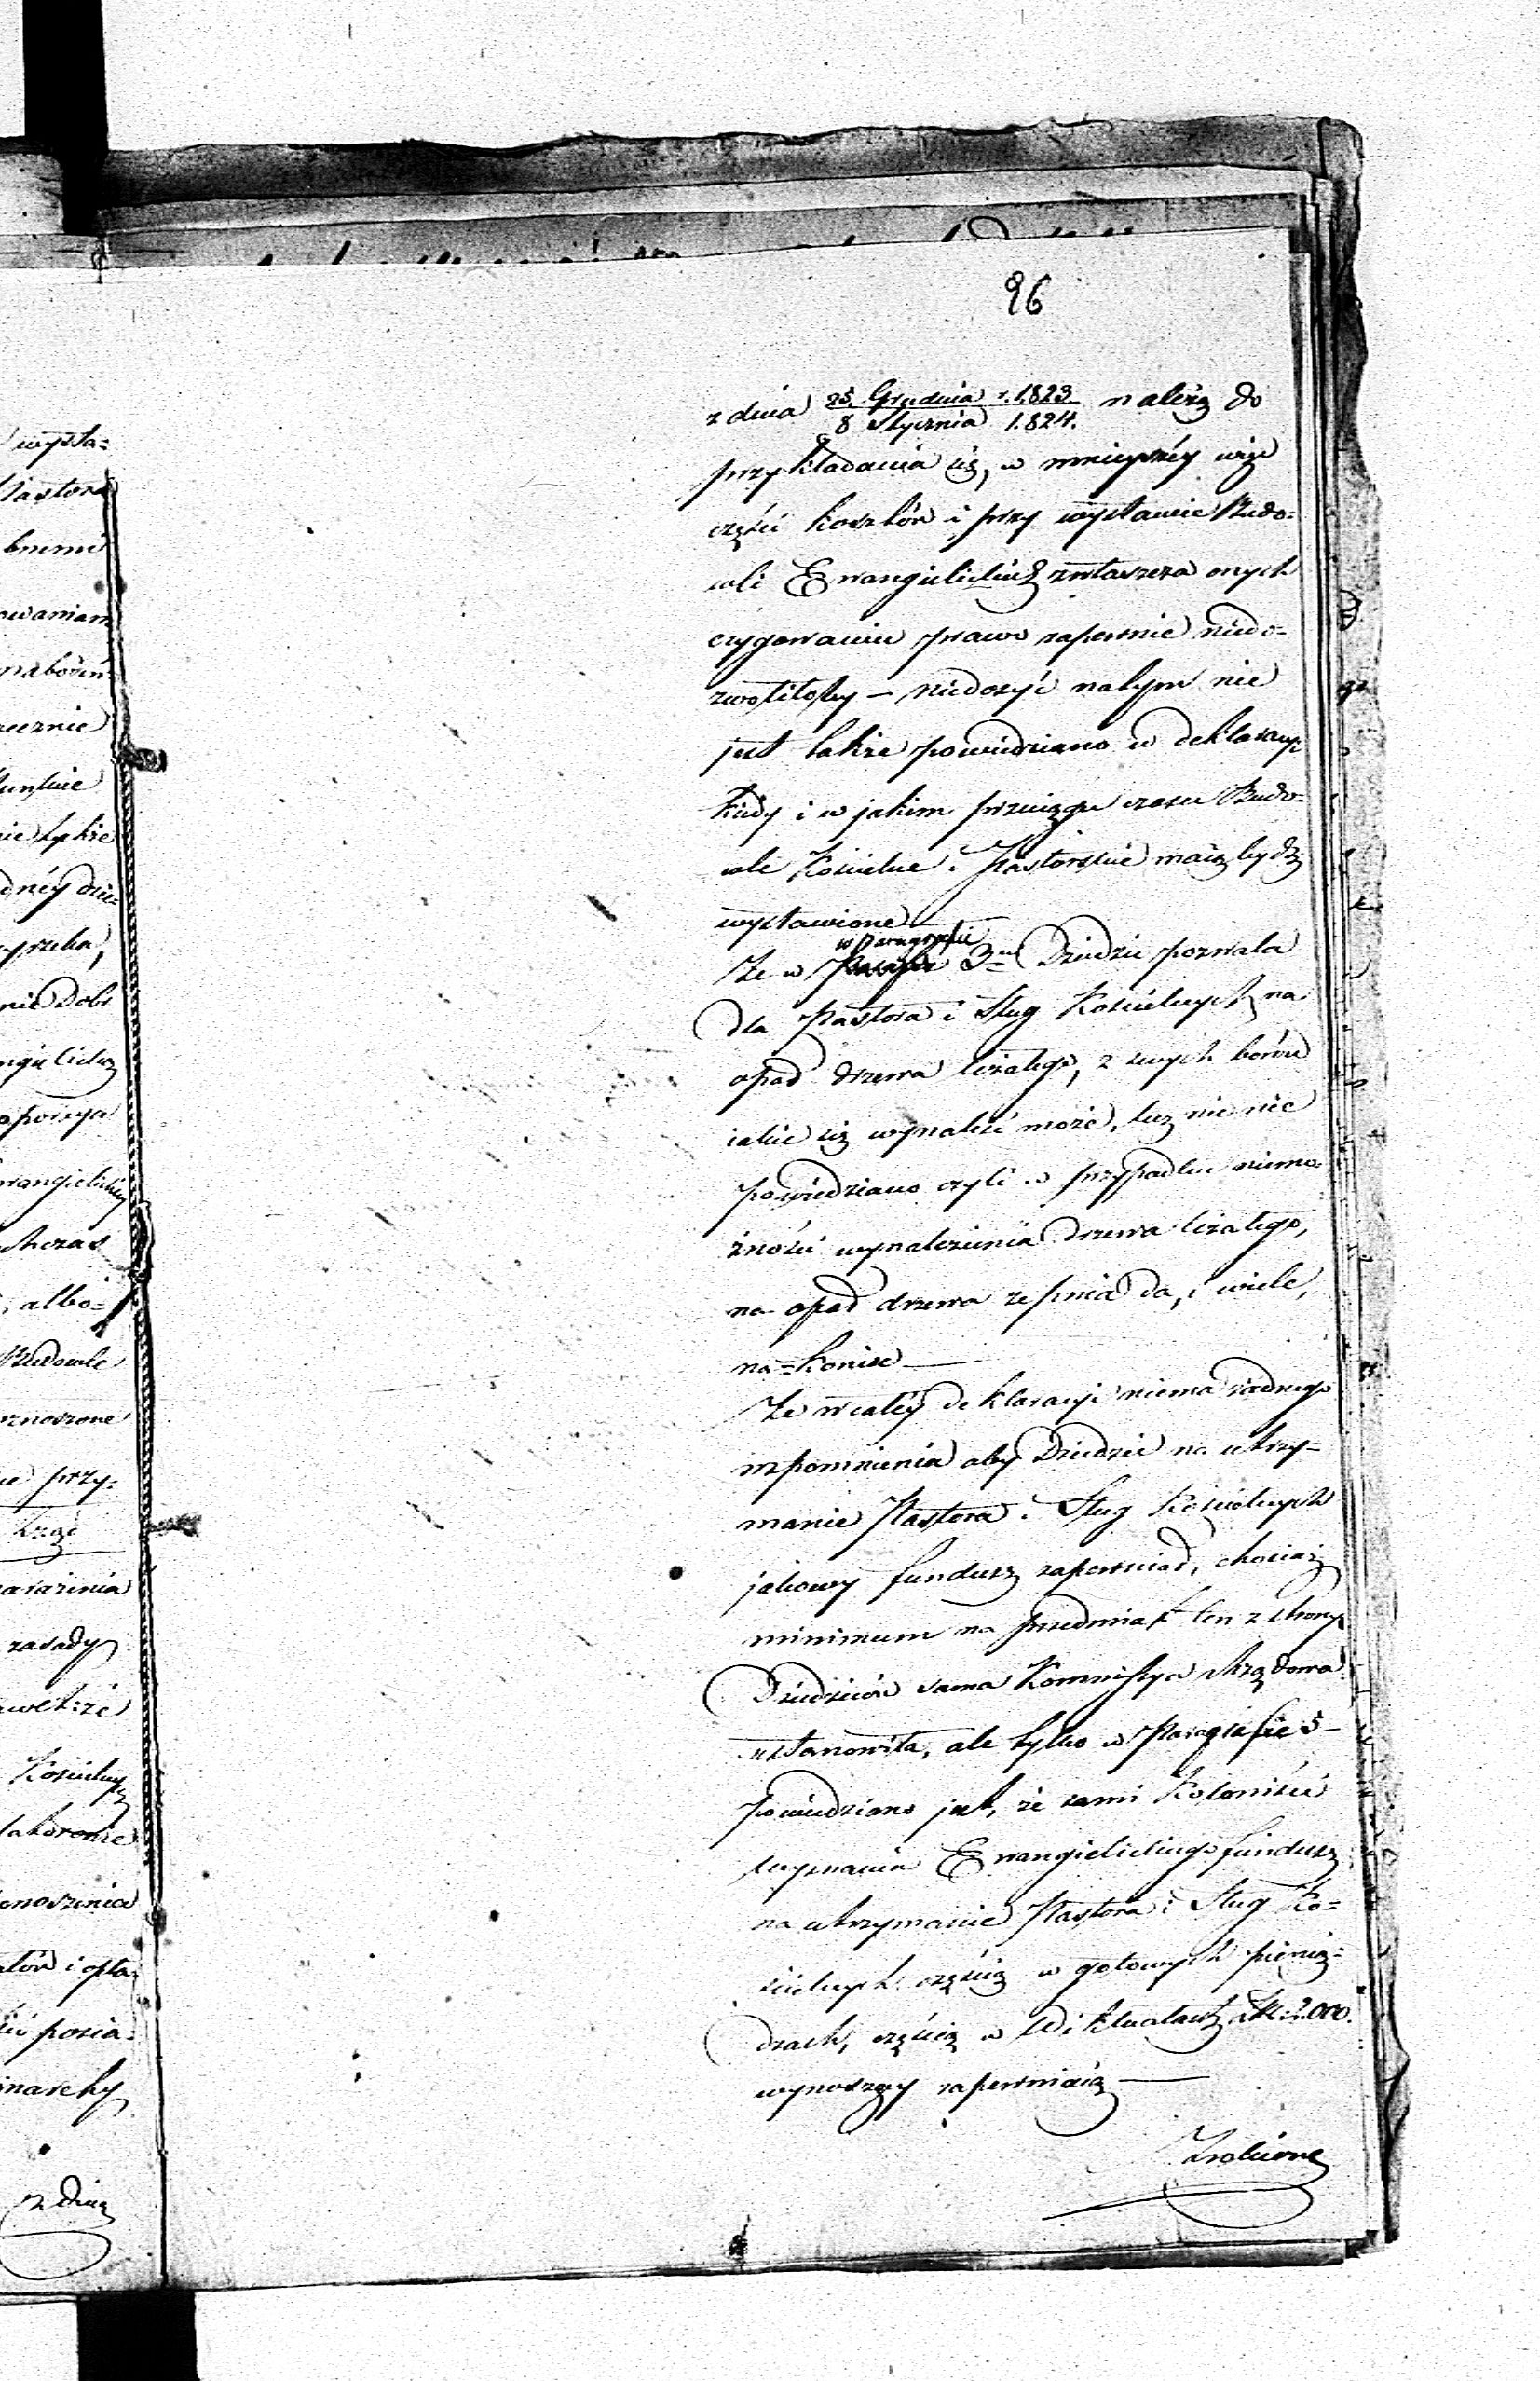 96
z dnia 25. Grudnia r. 1823 / 8 Stycznia 1.824. należą do
przykładania się, w mnieyszéy więc
części kosztów i przy wystawie Budo=
wli Ewangielickich zwłaszcza onych
erygowaniu prawo zapewnie niedo=
zwoliłoby — niedosyć natym nie
jest także powiedziano w deklaracyi
kiedy i w jakim przeciągu czasu Budo=
wle Kościelne i Pastorskie maią bydź
wystawione
Że w Paragrafie 3m Dziedzic pozwala
dla Pastora i Sług Kościelnych na
opał drzewa leżałego, z swych borów
iakie się wynaleść może, lecz nie nic
powiedziano czyli w przypadku niemo=
żności wynalezienia drzewa leżałego,
na opał drzewa ze pnia da, i wiele,
na=koniec —
Że w całéy deklaracyi niema żadnego
wspomnienia aby Dziedzic na utrzy=
manie Pastora i Sług Kościelnych
jakowy fundusz zapewniał, chociaż
minimum na przedmiot ten z strony
Dziedziców sama Kommissya Rządowa
ustanowiła, ale tylko w Paragrafie 5
powiedziano jest, że sami Koloniści
wyznania Ewangielickiego fundusz
na utrzymanie Pastora i Sług Ko=
ścielnych częścią w gotowych pienią=
dzach, częścią w Wiktuałach 2.000.
wynoszący zapewniaią —
Zrobione
wysta=
Pastora
owaniam
nabożeń
ecznie
nie tykże
dnéy dzie=
nie Dobr
Ewangielickiéy
wczas
, albo=
Budowle
znoszone
ie przy=
zasady
Kościelnych
noszenia
tów i opła=
ści posia=
narchy
z dnia